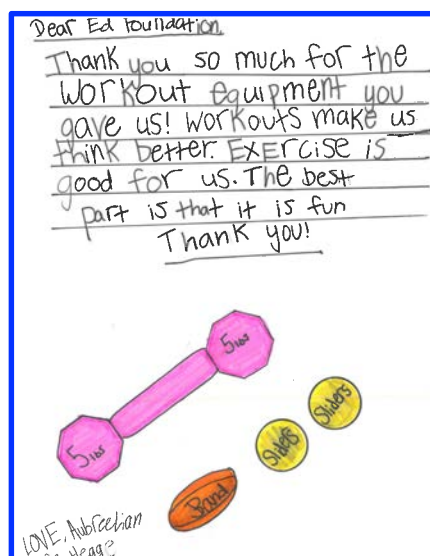 Dear Ed Foundation,
Thank you so much for the
workout equipment you
gave us! Workouts make us
think better. Exercise is
good for us. The best
part is that it is fun
Thank you!
5 lbs
5 lbs
Sliders
Sliders
Band
LOVE, Aubreelian